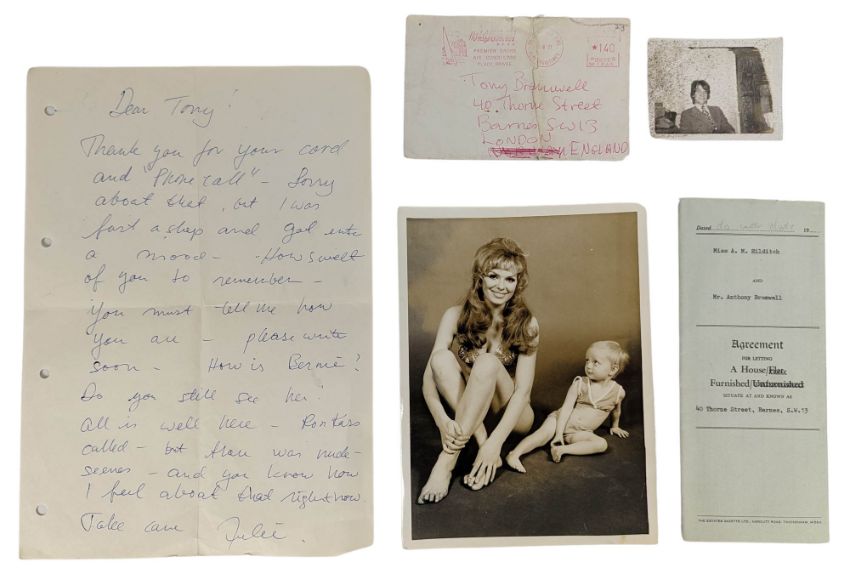 Dear Tony!
Thank you for your card
and "Phone call" - Sorry
about that, but I was
fast asleep and got into
a mood - How sweet
of you to remember -
you must tell me how
you are - please write
soon - How is Bernie?
Do you still see her?
all is well here -
called - but there was nude-
scenes - and you know how
I feel about that right now.
Take care Julie.
PREMIER GRADE
AIR CONDITIONED
*140
Tony Bramwell
40 Thorne Street
Barnes S.W.13
LONDON
ENGLAND
Dated 19
Miss A. M. Hilditch
AND
Mr. Anthony Bramwell
Agreement
FOR LETTING
A House/Flat
Furnished/Unfurnished
SITUATE AT AND KNOWN AS
40 Thorne Street, Barnes, S.W.13
THE ESTATES GAZETTE LTD.,